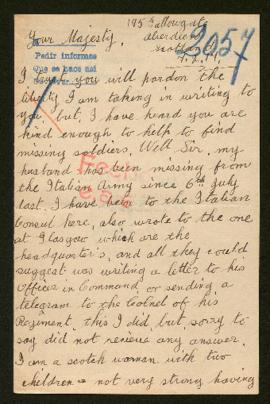 195 Gallowgate
Aberdeen
Scotland
3057
Your Majesty,
Pedir informes
Que se hace así
I hope you will pardon the
liberty I am taking in writing to
you, but, I have heard you are
kind enough to help to find
missing soldiers. Well Sir, my
husband has been missing from
the Italian Army since 6th July
last. I have been to the Italian
Consul here, also wrote to the one
at Glasgow which are the
headquarter's, and all they could
suggest was writing a letter to his
Officer in Command, or sending a
telegram to the Colnel of his
Regiment, this I did, but sorry to
say did not recieve any answer.
I am a scotch woman with two
children not very strong, having